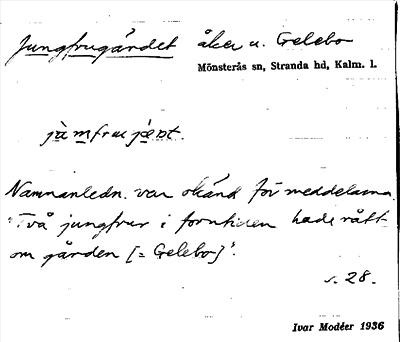 Jungfrugärdet åker u. Gelebo
Mönsterås sn, Stranda hd, Kalm. l.
jàmfrujènt.
Namnanledn. var okänd för meddelarna.
"Två jungfrur i forntiden hade rått
om gården [= Gelebo]".
s. 28.
Ivar Modéer 1936